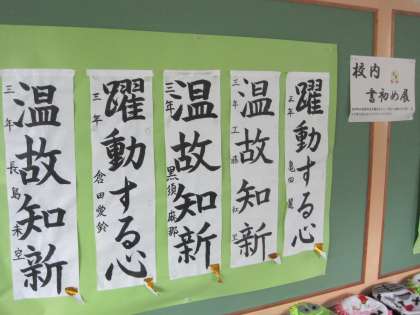 躍動する心
三年
温故知新
三年
温故知新
三年
黒須麻那
躍動する心
三年
倉田愛鈴
温故知新
三年
長島未空
校内
書初め展